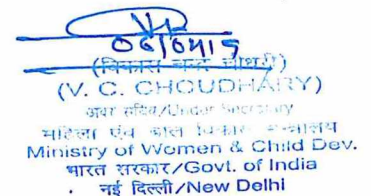 06/04/15
(विकास चन्द चौधरी)
(V. C. CHOUDHARY)
अवर सचिव/Under Secretary
महिला एवं बाल विकास मन्त्रालय
Ministry of Women & Child Dev.
भारत सरकार/Govt. of India
नई दिल्ली/New Delhi